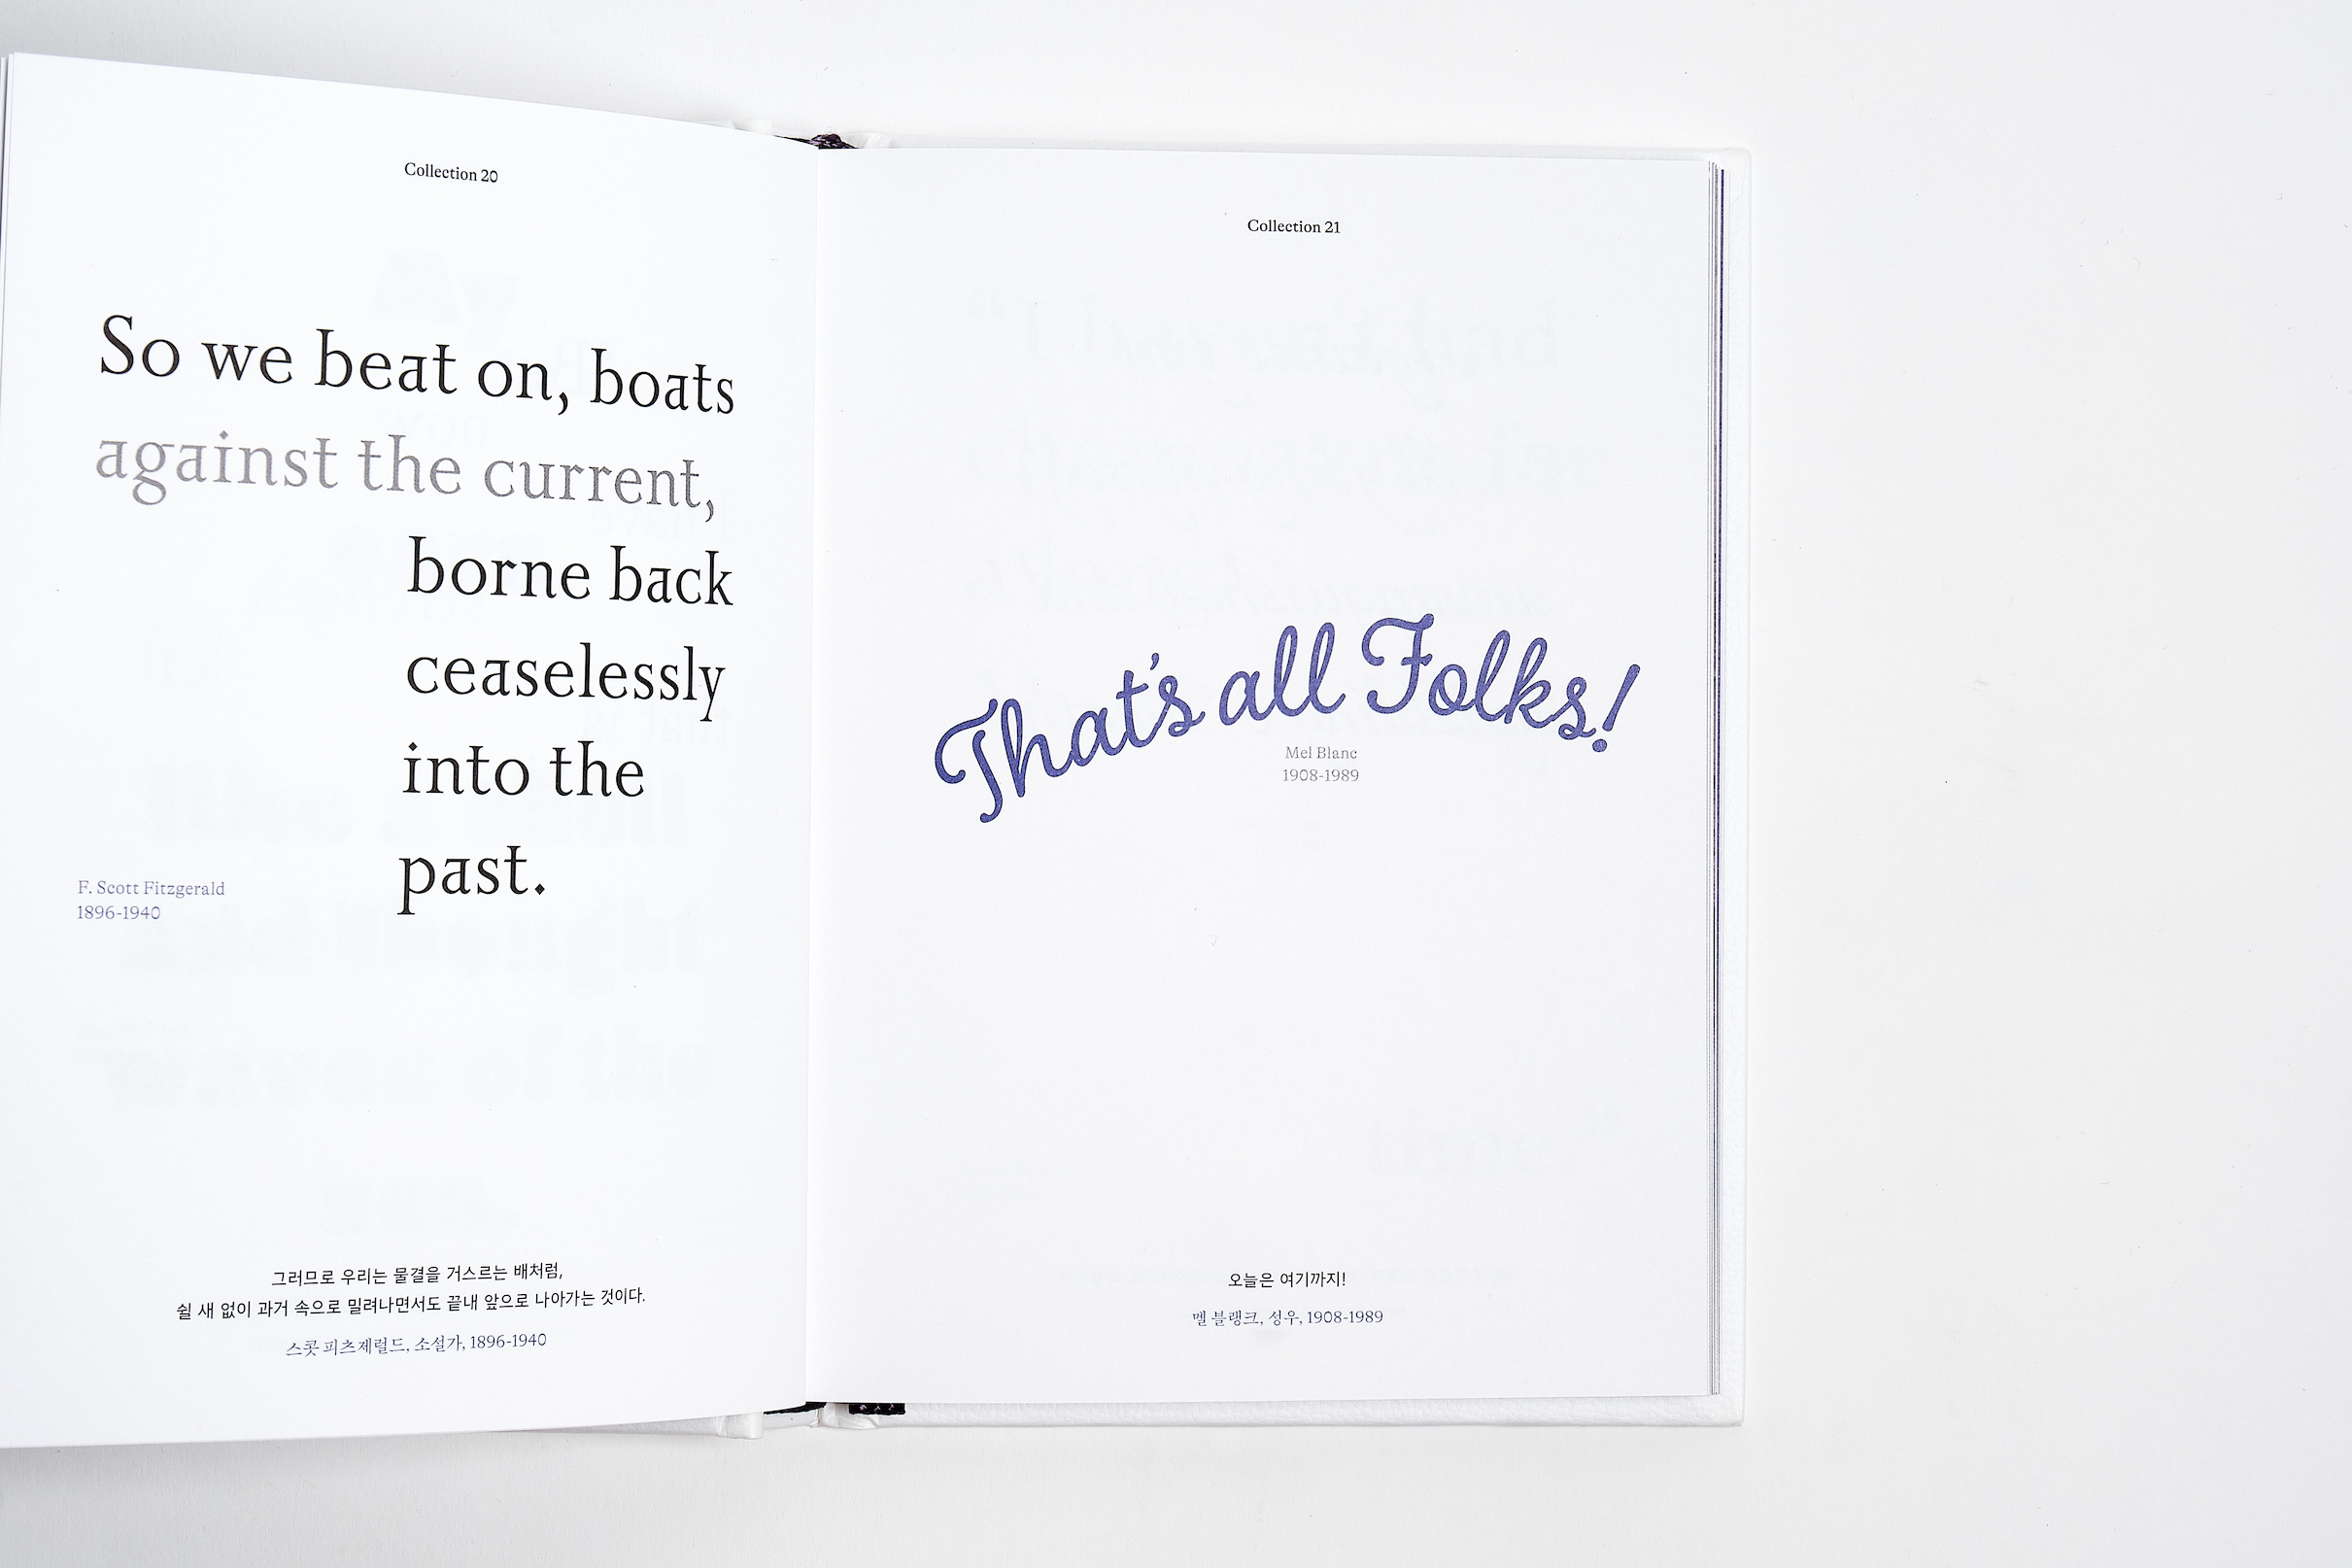 Collection 20
So we beat on, boats
against the current,
borne back
ceaselessly
into the
past.
F. Scott Fitzgerald
1896-1940
그러므로 우리는 물결을 거스르는 배처럼,
쉴 새 없이 과거 속으로 밀려나면서도 끝내 앞으로 나아가는 것이다.
스콧 피츠제럴드, 소설가, 1896-1940
Collection 21
That's all Folks!
Mel Blanc
1908-1989
오늘은 여기까지!
멜 블랭크, 성우, 1908-1989